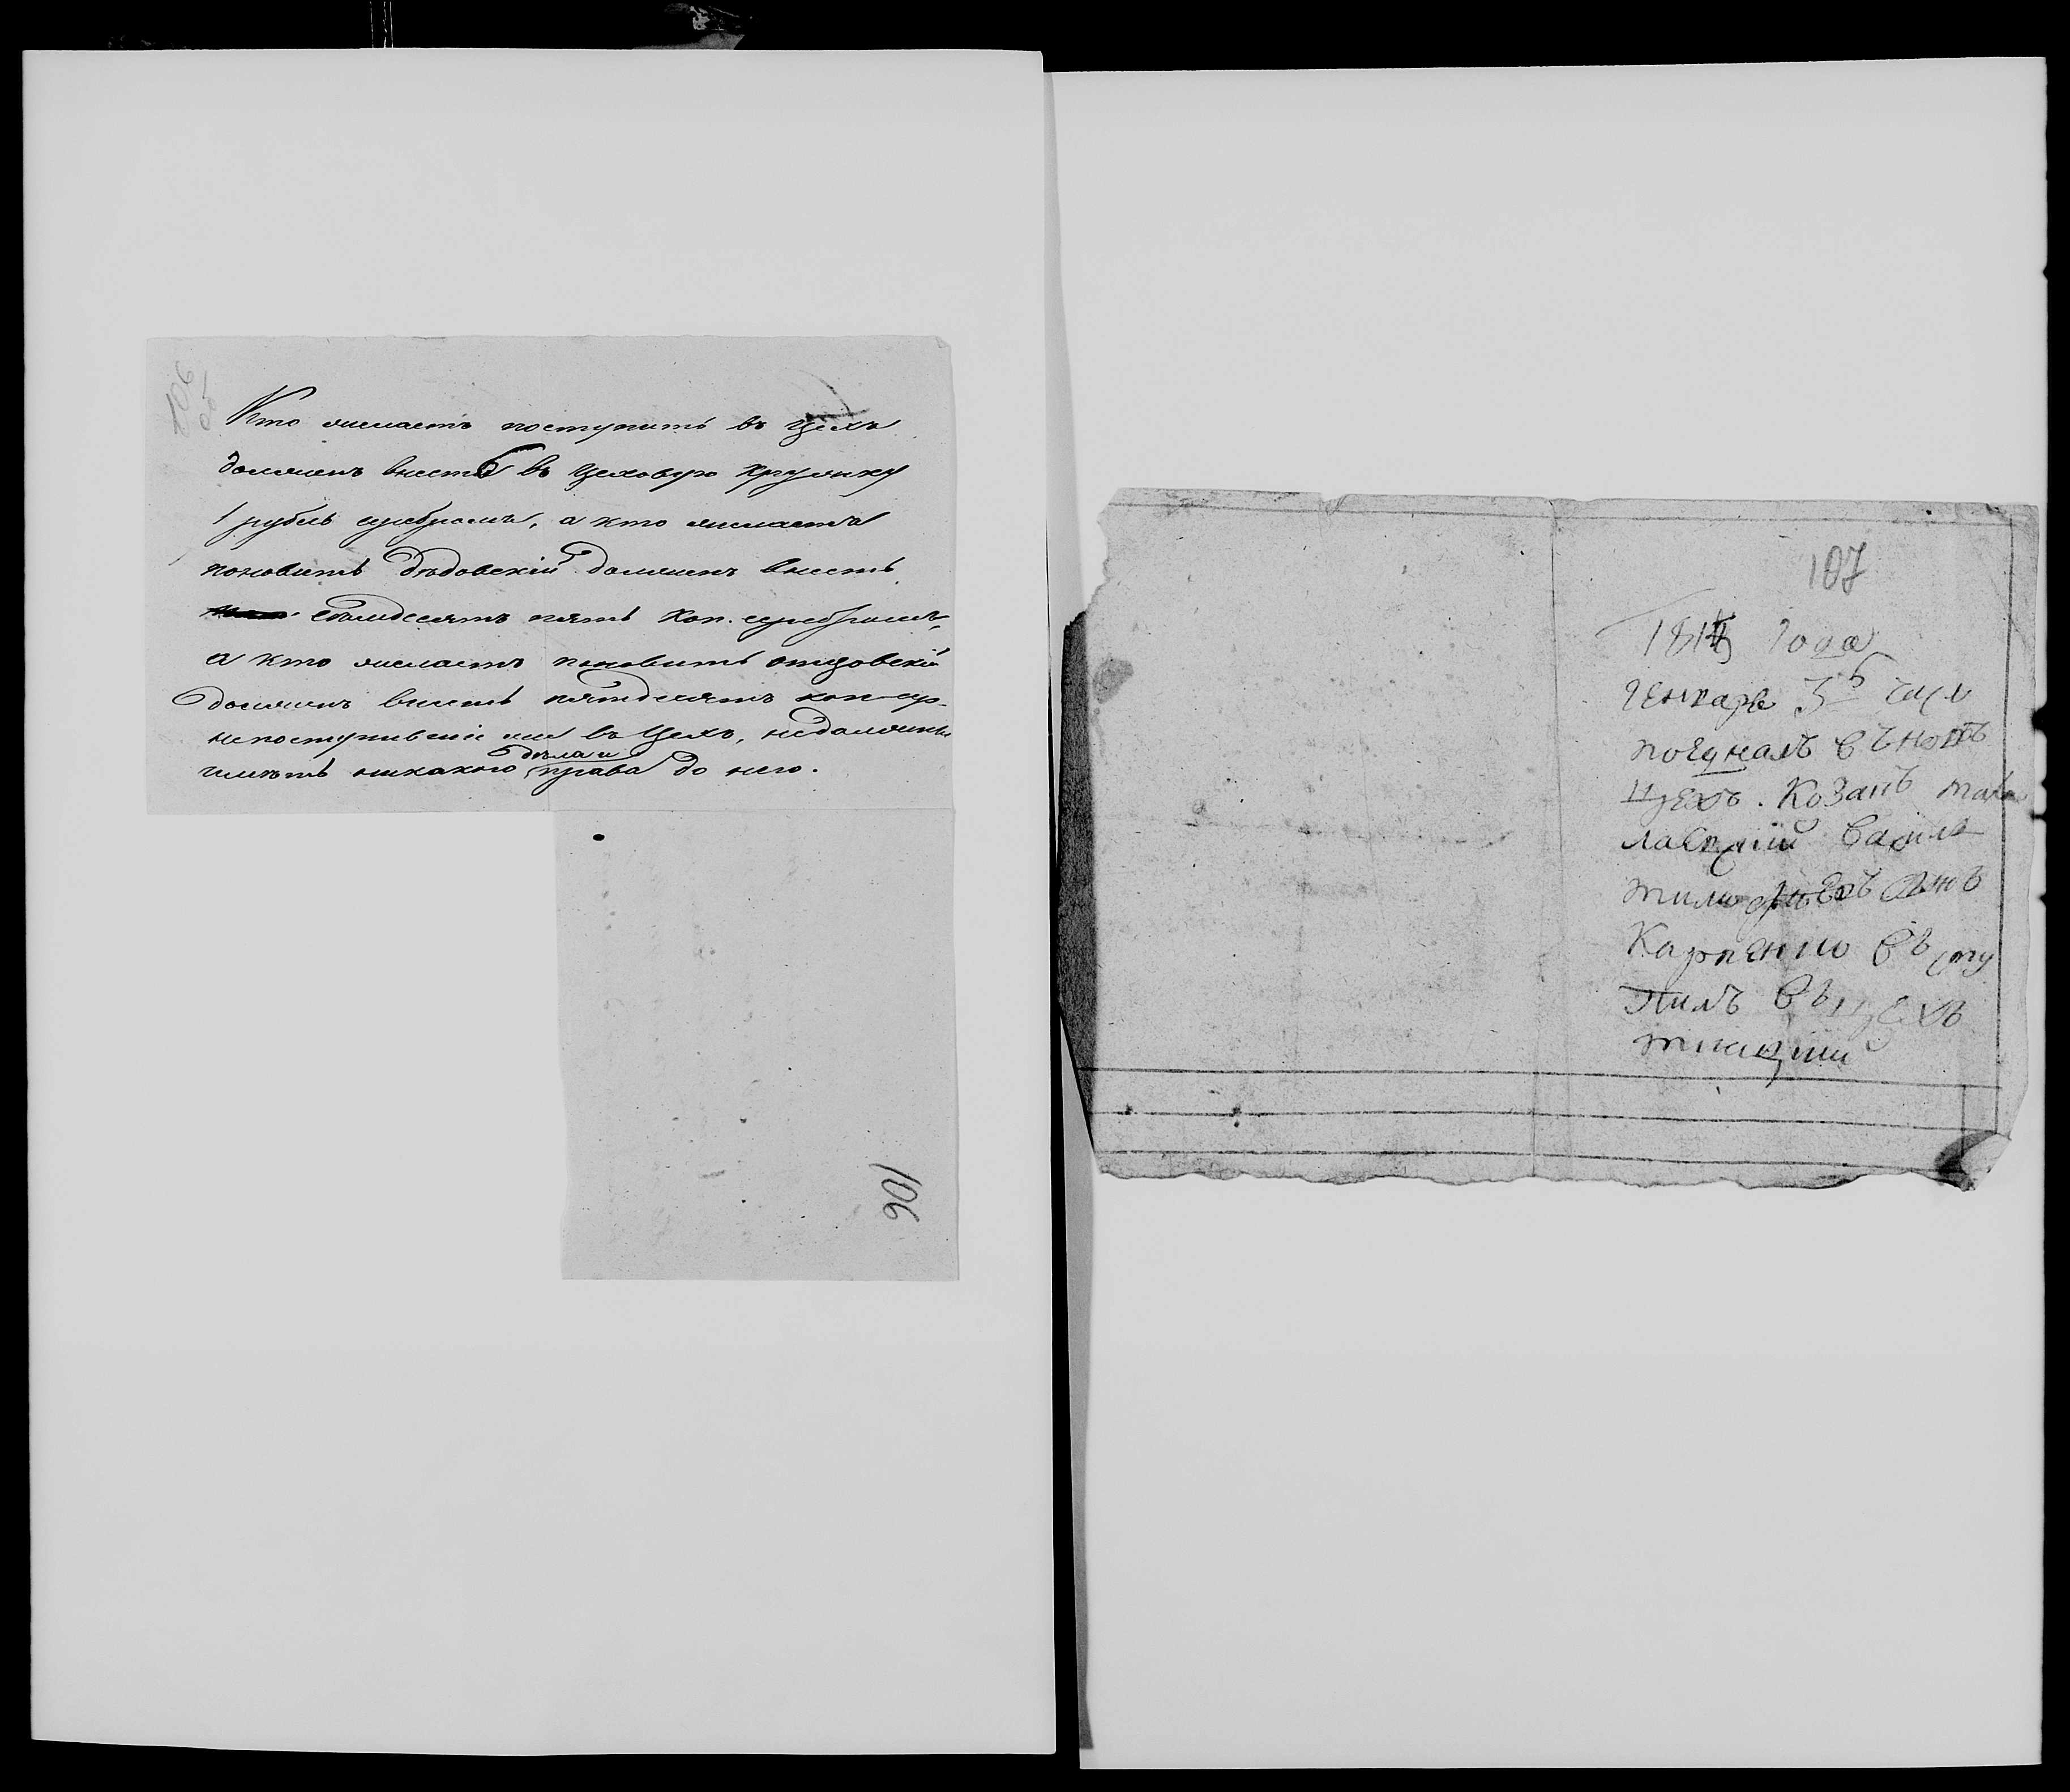 106
об
Кто желаетъ поступить въ Цехъ
долженъ внесть въ Цеховую кружку
1 рубль серебромъ, а кто желаетъ
поновить дѣдовскій долженъ внесть
семдесятъ пять коп. серебромъ,
а кто желаетъ поновить отцовскій
долженъ внесть пятдесятъ коп сер.
непоступившіе же въ Цехъ, недолжны
дѣла и
имѣть никакого права до него.
106
107
181 года
Генваря 3 чис
въ
Цехъ. Козанъ
лавский
Карпенко въ сту
пилъ въ цехъ
ткацкий